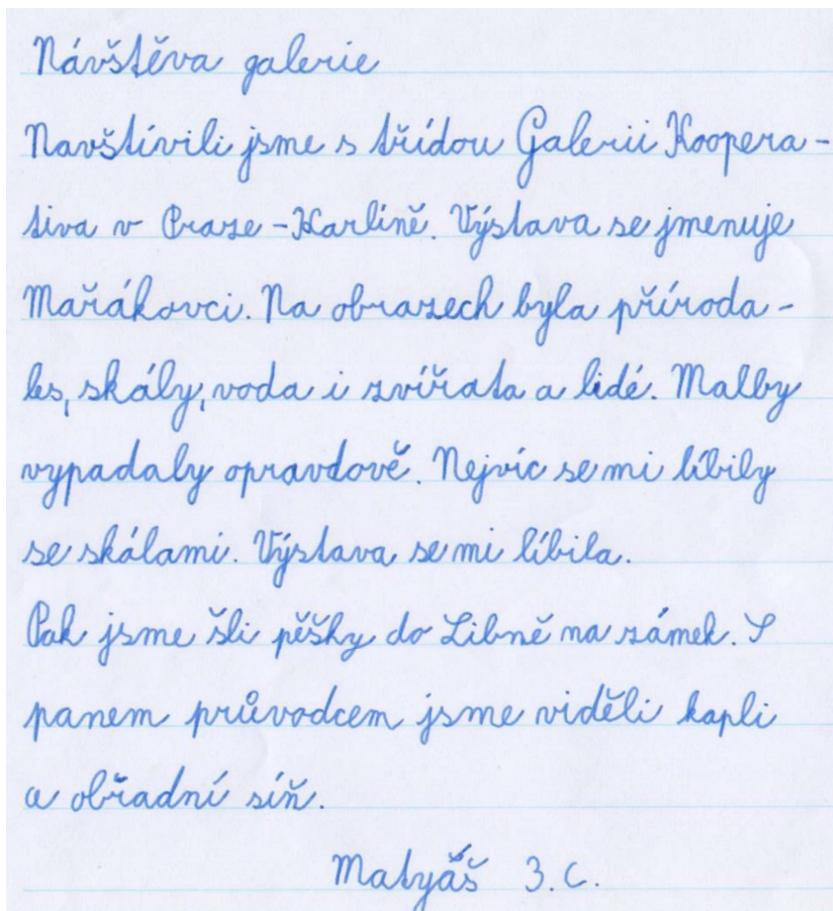 Návštěva galerie
Navštívili jsme s třídou Galerii Koopera-
tiva v Praze-Karlíně. Výstava se jmenuje
Mařákovci. Na obrazech byla příroda-
les, skály, voda i zvířata a lidé. Malby
vypadaly opravdově. Nejvíc se mi líbily
se skálami. Výstava se mi líbila.
Pak jsme šli pěšky do Libně na zámek. S
panem průvodcem jsme viděli kapli
a obřadní síň.
Matyáš 3.C.